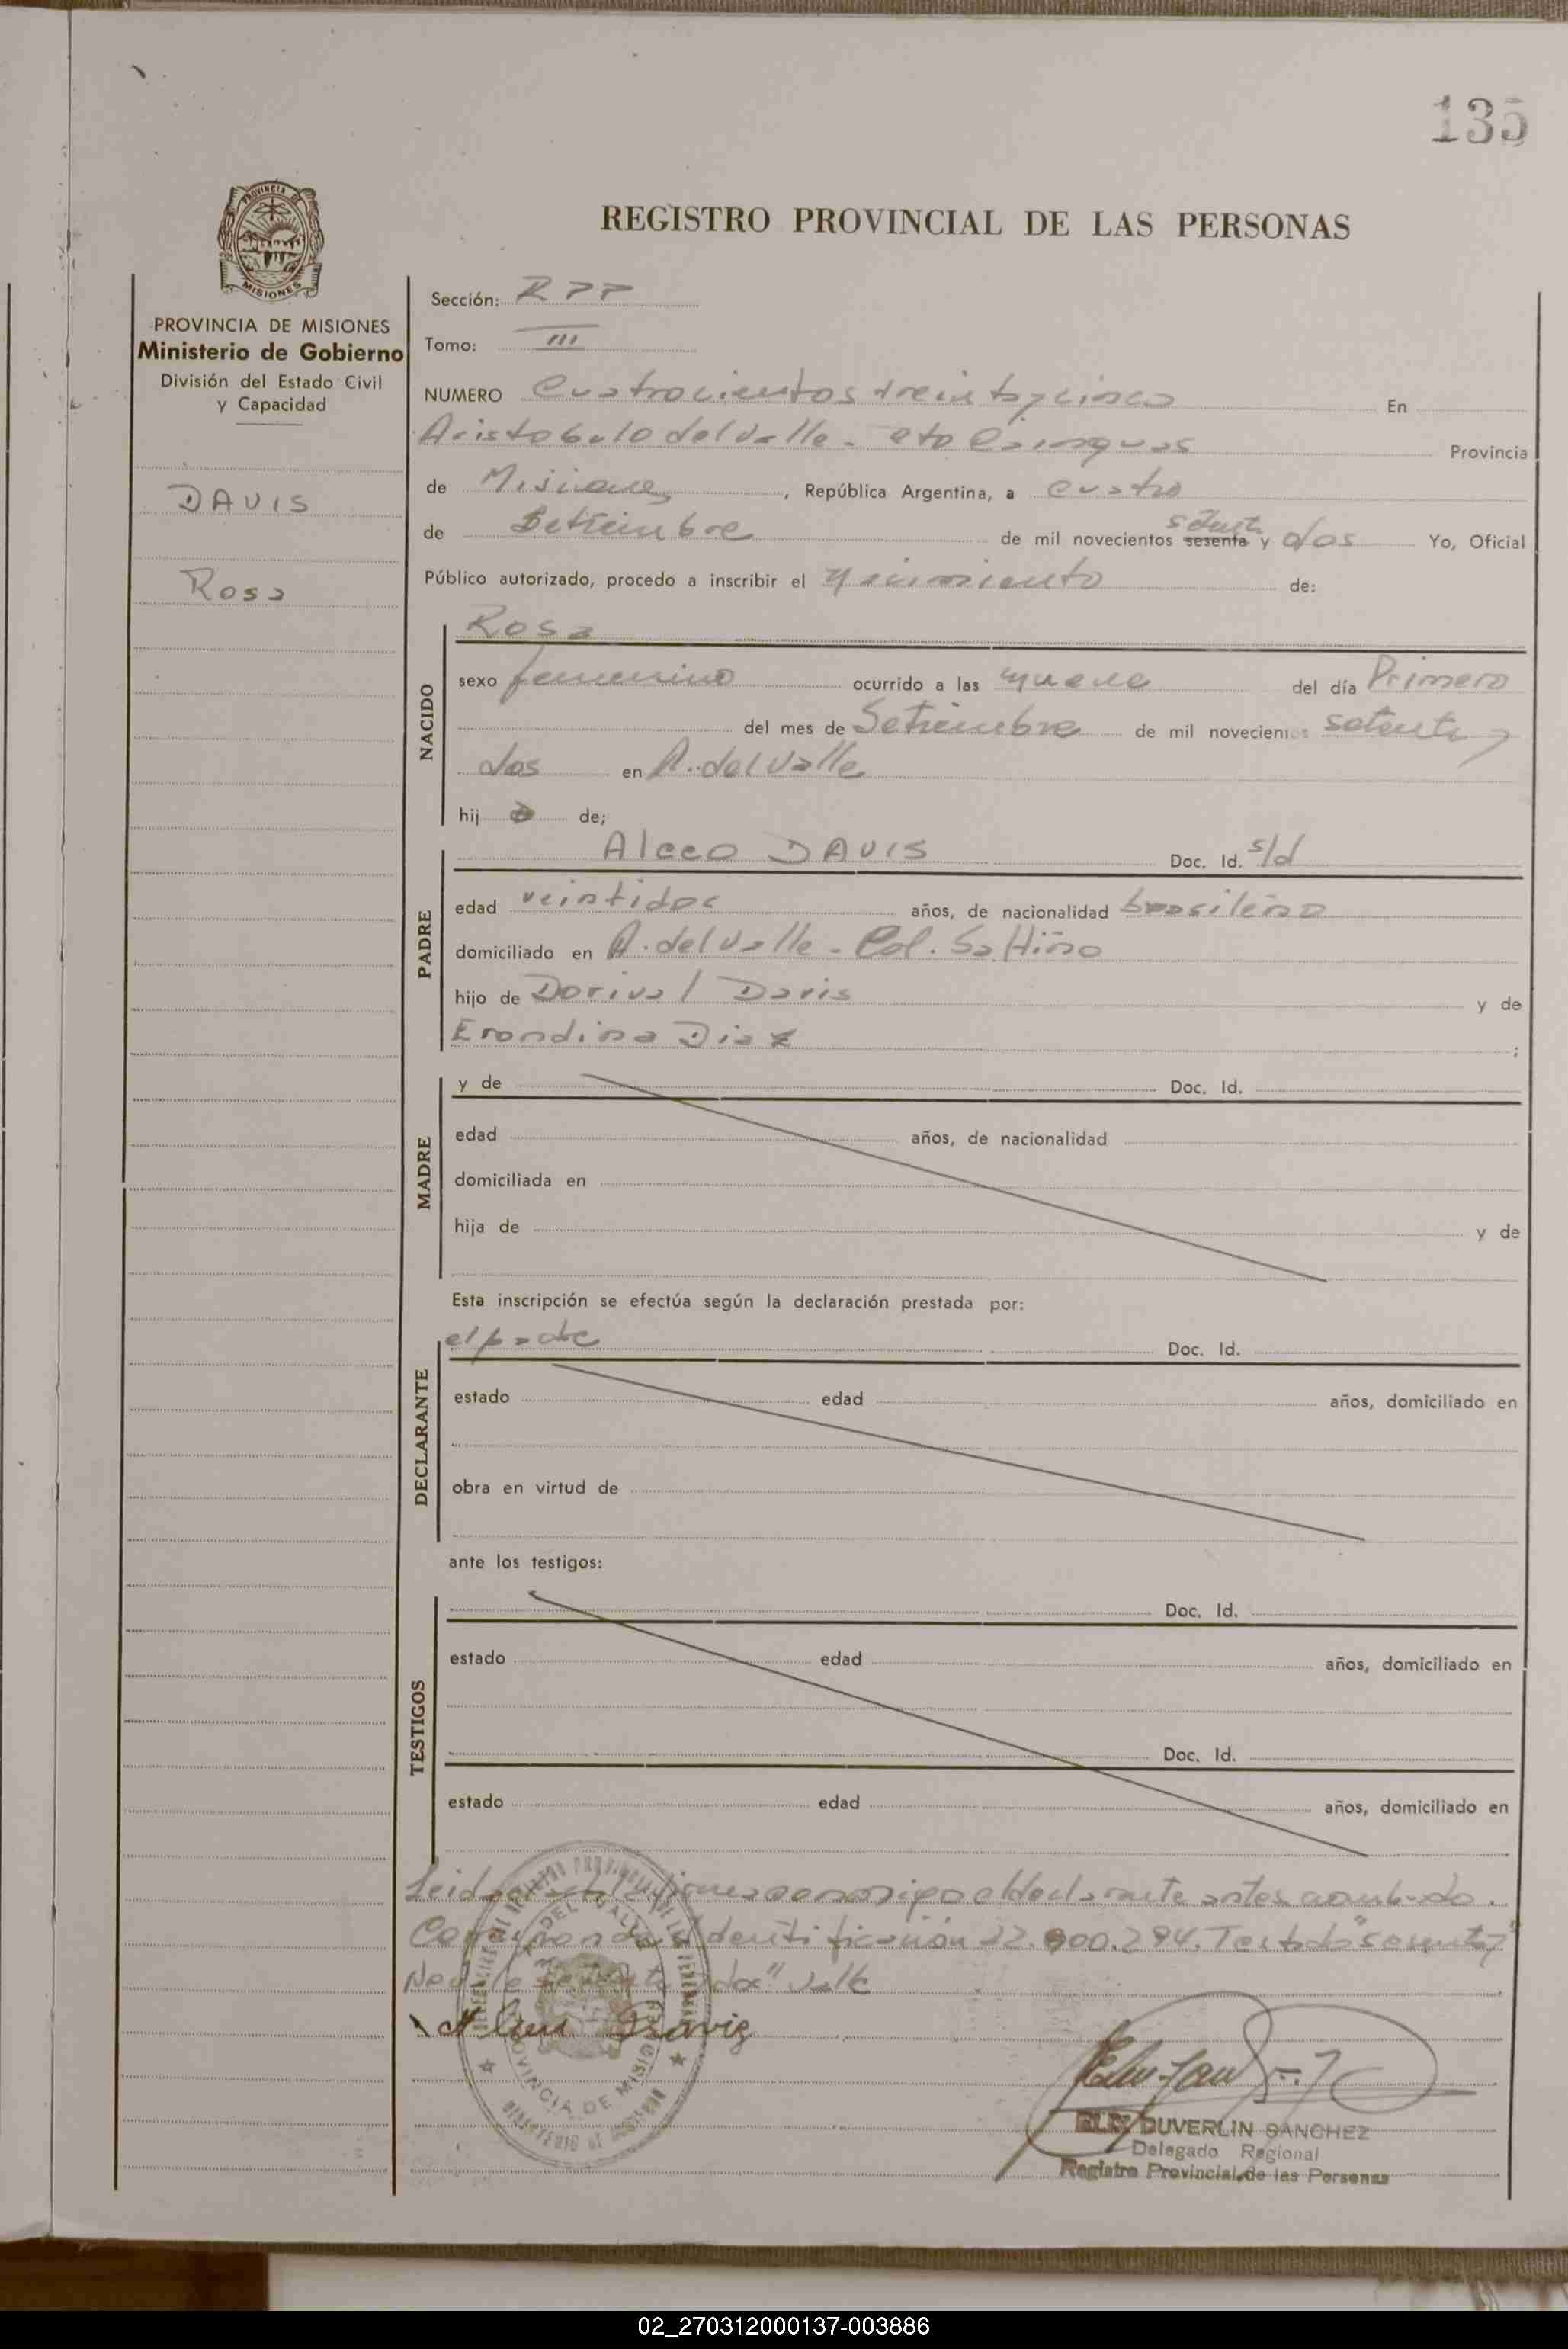 135
PROVINCIA DE
MISIONES
REGISTRO PROVINCIAL DE LAS PERSONAS
PROVINCIA DE MISIONES
Ministerio de Gobierno
División del Estado Civil
y Capacidad
DAVIS
Rosa
Sección: RPP
Tomo: III
NUMERO Cuatrocientos treinta y cinco En
Aristobulo del Valle - Dto Cainguas Provincia
de Misiones, República Argentina, a cuatro
de Setiembre de mil novecientos sesenta setenta y dos Yo, Oficial
Público autorizado, procedo a inscribir el nacimiento de:
NACIDO
Rosa
sexo femenino ocurrido a las nueve del día Primero
del mes de Setiembre de mil novecientos setenta y
dos en A. del Valle
hij a de;
PADRE
Alceo DAVIS Doc. Id. s/d
edad veintidos años, de nacionalidad brasileño
domiciliado en A. del Valle - Col. Saltiño
hijo de Dorival Davis y de
Erondina Diaz ;
MADRE
y de Doc. Id.
edad años, de nacionalidad
domiciliada en
hija de y de
Esta inscripción se efectúa según la declaración prestada por:
DECLARANTE
el padre Doc. Id.
estado edad años, domiciliado en
obra en virtud de
ante los testigos:
TESTIGOS
Doc. Id.
estado edad años, domiciliado en
Doc. Id.
estado edad años, domiciliado en
Leida el acta firma conmigo el declarante antes nombrado.
Corresponde Identificación 22.900.294. Testado "sesenta y"
"setenta y dos" Vale
Davis
PROVINCIA DE MISIONES
ELIX DUVERLIN SANCHEZ
Delegado Regional
Registro Provincial de las Personas
02_270312000137-003886